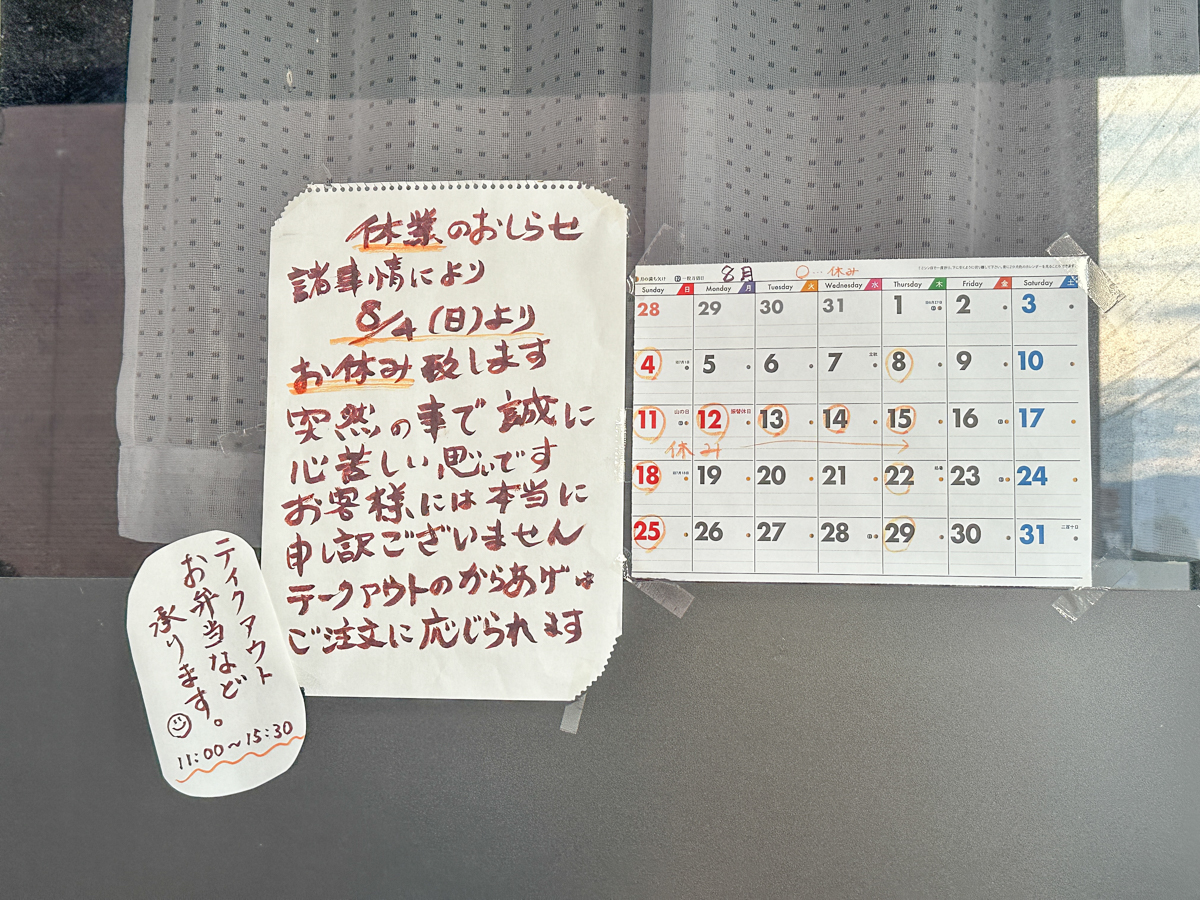 休業のおしらせ
諸事情により
8/4(日)より
お休み致します
突然の事で誠に
心苦しい思いです
お客様には本当に
申し訳ございません
テークアウトのからあげは
ご注文に応じられます
テイクアウト
お弁当など
承ります。
11:00~15:30
8月 〇…休み
Sunday 日 Monday 月 Tuesday 火 Wednesday 水 Thursday 木 Friday 金 Saturday 土
28 29 30 31 1 2 3
4 5 6 7 8 9 10
11 山の日 12 振替休日 13 14 15 16 17
休み
18 19 20 21 22 23 24
25 26 27 28 29 30 31